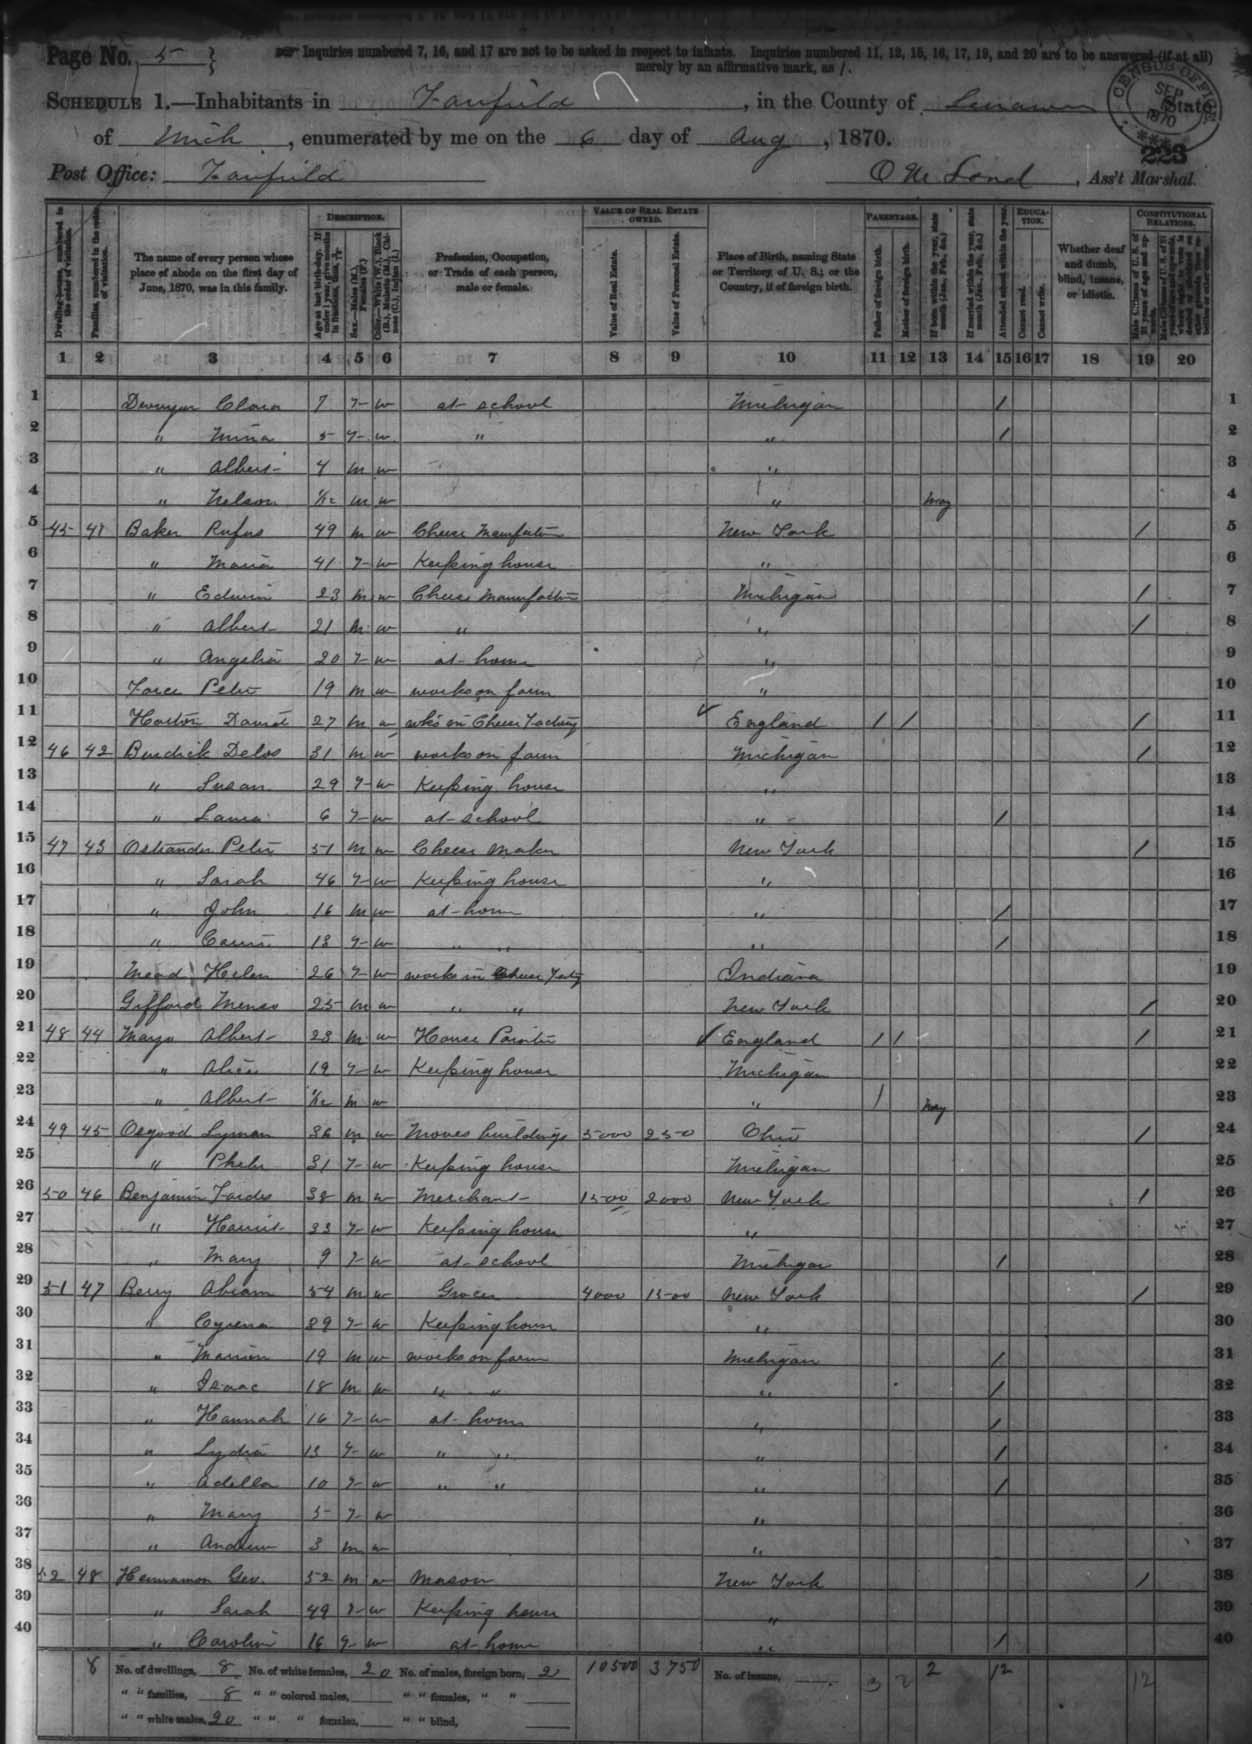 Page No. 5
Inquiries numbered 7, 16, and 17 are not to be asked in respect to infants. Inquiries numbered 11, 12, 15, 16, 17, 19, and 20 are to be answered (if at all)
merely by an affirmative mark, as /.
SCHEDULE 1.—Inhabitants in Fairfield, in the County of Lenawee State
of Mich, enumerated by me on the 6 day of Aug, 1870.
CENSUS OFFICE SEP 1870
223
Post Office: Fairfield
Land, Ass't Marshal.
DESCRIPTION. VALUE OF REAL ESTATE OWNED. PARENTAGE. EDUCATION. CONSTITUTIONAL RELATIONS.
Dwelling-houses, numbered in the order of visitation.
Families, numbered in the order of visitation.
The name of every person whose place of abode on the first day of June, 1870, was in this family.
Age at last birth-day. If under 1 year, give months in fractions, thus, 3/12
Sex.—Males (M.), Females (F.)
Color.—White (W.), Black (B.), Mulatto (M.), Chinese (C.), Indian (I.)
Profession, Occupation, or Trade of each person, male or female.
Value of Real Estate.
Value of Personal Estate.
Place of Birth, naming State or Territory of U. S.; or the Country, if of foreign birth.
Father of foreign birth.
Mother of foreign birth.
If born within the year, state month (Jan., Feb., &c.)
If married within the year, state month (Jan., Feb., &c.)
Attended school within the year.
Cannot read.
Cannot write.
Whether deaf and dumb, blind, insane, or idiotic.
Male Citizens of U. S. of 21 years of age and upwards.
1 2 3 4 5 6 7 8 9 10 11 12 13 14 15 16 17 18 19 20
1 Clara 7 F W at school Michigan / 1
2 " Mina 5 F W " " / 2
3 " Albert 4 M W " 3
4 " Nelson 1/12 M W " May 4
5 45 41 Baker Rufus 49 M W Cheese New York / 5
6 " Maria 41 F W Keeping house " 6
7 " Edwin 23 M W Cheese Michigan / 7
8 " Albert 21 M W " " / 8
9 " Angelia 20 F W at home " 9
10 Force Peter 19 M W works on farm " 10
11 Horton David 27 M W wks in Cheese Factory England / / / 11
12 46 42 Burdick Delos 31 M W works on farm Michigan / 12
13 " Susan 29 F W Keeping house " 13
14 " Laura 6 F W at school " / 14
15 47 43 Ostrander Peter 51 M W Cheese Maker New York / 15
16 " Sarah 46 F W Keeping house " 16
17 " John 16 M W at home " / 17
18 " Carrie 13 F W " " " / 18
19 Mead Helen 26 F W works in Cheese Indiana 19
20 Gifford 25 M W " " New York / 20
21 48 44 Mayo Albert 23 M W House Painter England / / / 21
22 " Alice 19 F W Keeping house Michigan 22
23 " Albert 1/12 M W " / May 23
24 49 45 Osgood Lyman 36 M W Moves buildings 5000 250 Ohio / 24
25 " Phebe 31 F W Keeping house Michigan 25
26 50 46 Benjamin 38 M W Merchant 1500 2000 New York / 26
27 " Harriet 33 F W Keeping house " 27
28 " Mary 9 F W at school Michigan / 28
29 51 47 Berry Abram 54 M W Grocer 4000 1500 New York / 29
30 " Cyrena 39 F W Keeping house " 30
31 " Marion 19 M W works on farm Michigan / 31
32 " Isaac 18 M W " " " / 32
33 " Hannah 16 F W at home " / 33
34 " Lydia 13 F W " " " / 34
35 " Adella 10 F W " " " / 35
36 " Mary 5 F W " 36
37 " Andrew 3 M W " 37
38 52 48 Geo. 52 M W Mason New York / 38
39 " Sarah 49 F W Keeping house " 39
40 " Caroline 16 F W at home " / 40
8 No. of dwellings, 8 No. of white females, 20 No. of males, foreign born, 2 10500 3750 No. of insane, 3 2 2 12 12
" " families, 8 " " colored males, " " females, " "
" " white males, 20 " " " females, " " blind,